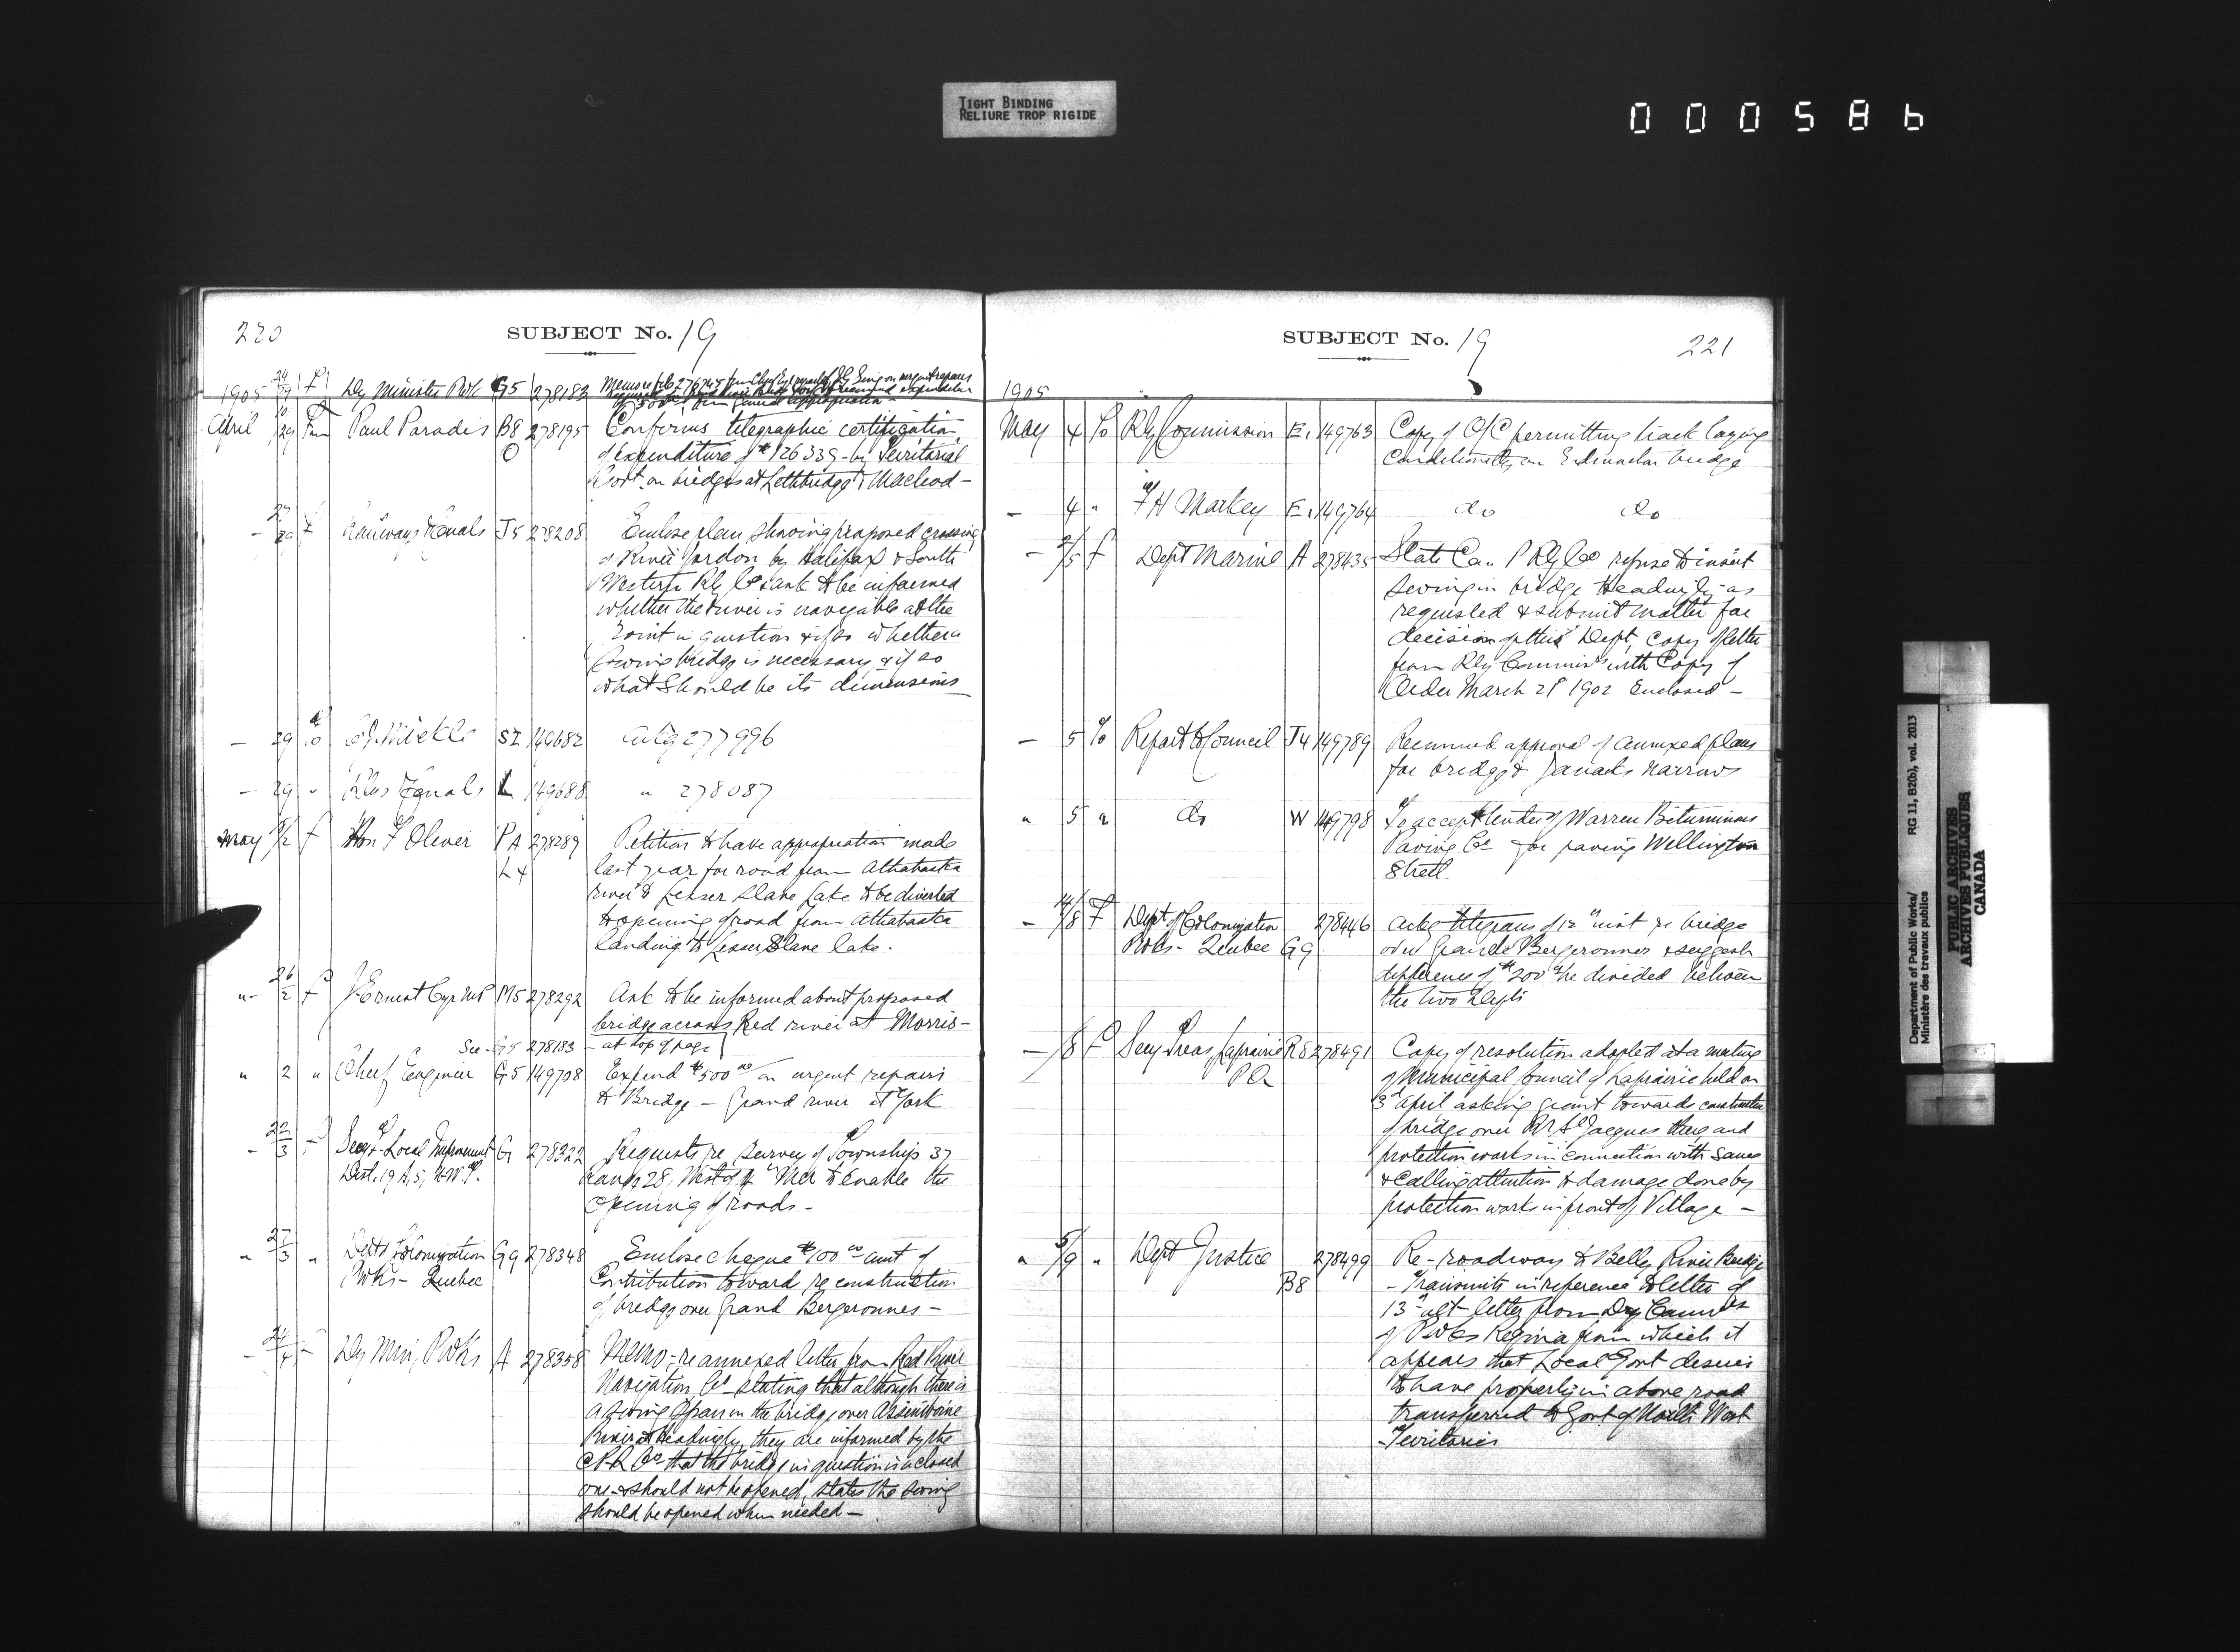 TIGHT BINDING
RELIURE TROP RIGIDE
000586
220
SUBJECT No. 19
1905 Dy Minister PWks G5 278183 Memo re
April 29 Fm Paul Paradis B8 278195 Confirms telegraphic certification
O of expenditure of $126339- by Territorial
Govt. on bridges at Lethbridge & Macleod -
- 29 f Railways & Canals J5 278208 Enclose plan showing proposed crossing
of River Jordon by Halifax & South
Western Rly Co & ask to be informed
whether the river is navigable at the
point in question & if so whether a
swing bridge is necessary & if so
what should be its dimensions
- 29 to Mickle SI 149682 ackg 277996
- 29 " Rlys & Canals L 149688 " 278087
May /2 f Hon F Oliver PA 278289 Petition to have appropriation made
L4 last year for road from Athabaska
river to Lesser Slave Lake to be diverted
to opening of road from Athabaska
Landing to Lesser Slave lake.
"- 26/2 f J Ernest Cyr MP M5 278292 Ask to be informed about proposed
bridge across Red river at Morris-
See - G5 278183 - at top of page
" 2 " Chief Engineer G5 149708 Expend $500 00 on urgent repairs
to Bridge - Grand river at York
- 22/3 f Secy- Local Improvement G 278322 Requests re survey of Township 37
Dist. 19 A, 5, N.W.T. Range 28, West of 4th Mer to enable the
opening of roads -
" 27/3 " Dept Colonization G9 278348 Enclose cheque $100 00 amt of
PWks - Quebec Contribution toward reconstruction
of bridge over Grand Bergeronnes -
- /4 - Dy Min, PWks A 278358 Memo - re annexed letter from Red River
Navigation Co - stating that although there is
a swing span in the bridge over Assiniboine
River at Headingly, they are informed by the
C.P.R. Co that the bridge in question is a closed
one & should not be opened, states the swing
should be opened when needed -
SUBJECT No. 19
221
1905
May 4 to Rly Commission E1 149763 Copy of O/C permitting track laying
conditionally on bridge
- 4 " F H Markey E1 149764 do do
- 2/5 f Dept Marine A 278435 State Can P Rly Co refuse to insert
swing in bridge Headingly - as
requested & submit matter for
decision of this Dept, copy of letter
from Rly Commiss with Copy of
Order March 21st 1902 Enclosed -
- 5 to Report to Council J4 149789 Recommend approval of annexed plans
for bridge & Narrows
" 5 " do W 149798 To accept tender of Warren Bituminous
Paving Co - for paving Wellington
Street.
- 4/8 F Dept of Colonization 278446 ackg telegram of 12th inst re bridge
PWks - Quebec G9 over Grande Bergeronnes & suggest
difference of $200 be divided between
the two Depts
- /8 f Secy Treas Laprairie R8 278491 Copy of resolution adopted at a meeting
PQ of Municipal Council of Laprairie held on
3rd April asking grant towards construction
of bridge over River St Jacques there and
protection works in connection with same
& calling attention to damage done by
protection works in front of Village -
" 5/9 " Dept Justice 278499 Re - roadway to Belly River Bridge
B8 - Transmits in reference to letter of
13th ult letter from Dy Commr
of PWks Regina from which it
appears that Local Govt desires
to have property in above road
transferred to Govt of North West
Territories
Department of Public Works/
Ministère des travaux publics
RG 11, B2(b), vol. 2013
PUBLIC ARCHIVES
ARCHIVES PUBLIQUES
CANADA